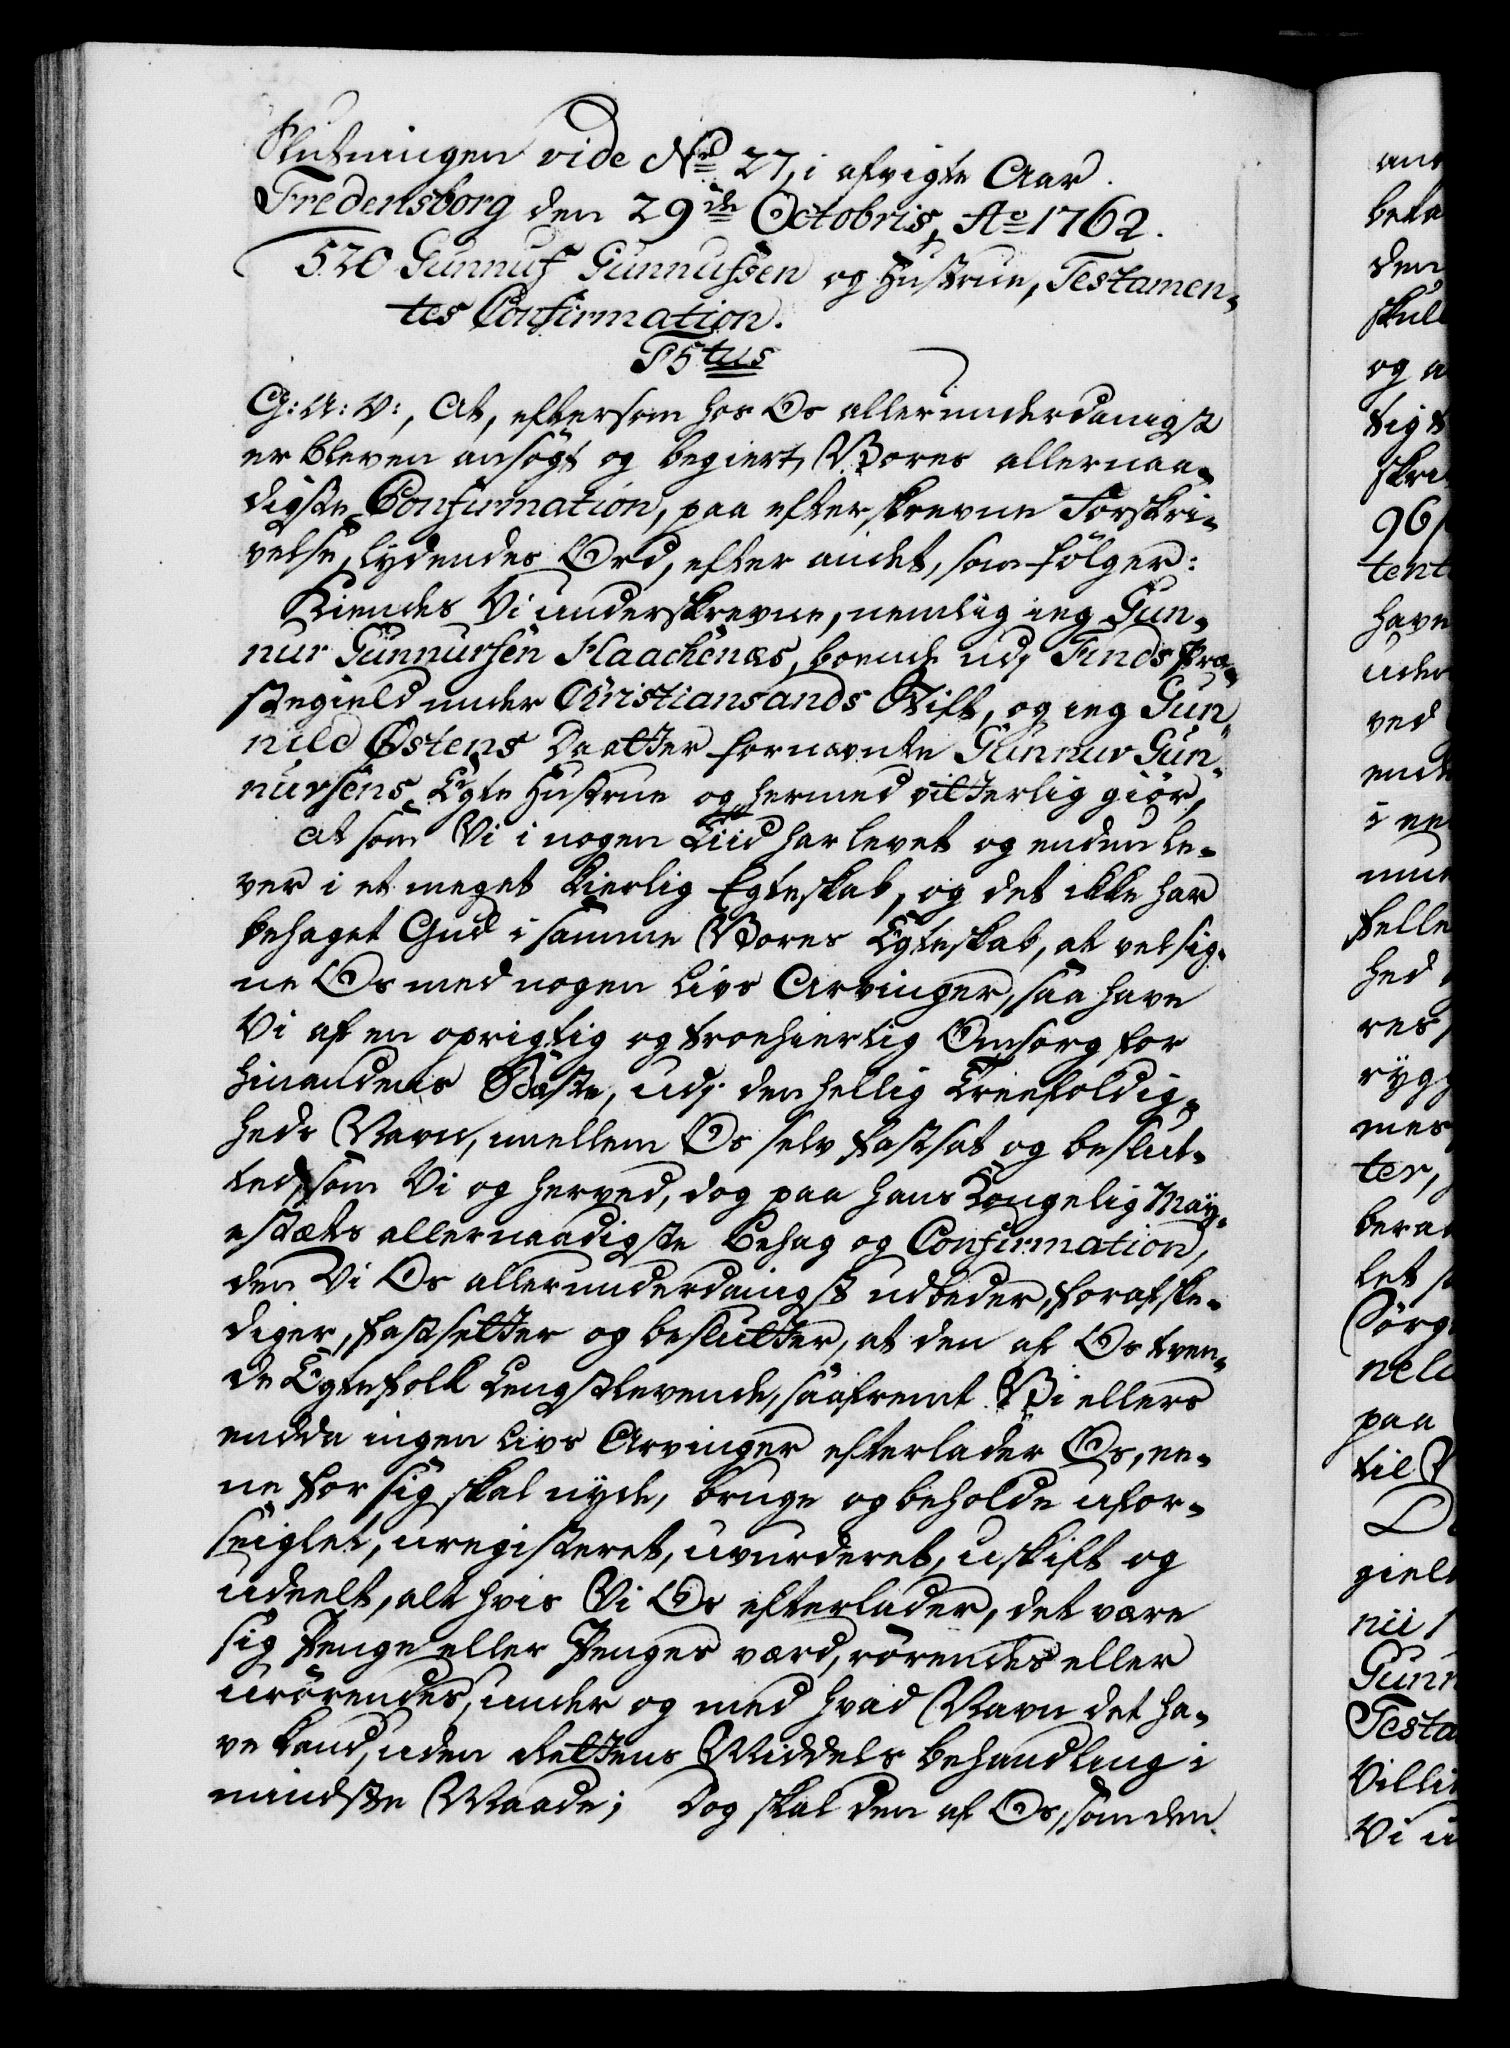 Slutningen vide No 27, i afvigte Aar.
Fredensborg den 29de Octobris, Ao 1762.
520 Gunnuf Gunnufsen og Hustrue, Testamen-
tes Confirmation.
P5tus
G: A: V:, At, eftersom hos Os allerunderdanigst
er bleven ansøgt og begiert, Vores allernaa-
digste Confirmation, paa efterskrevne Forskri-
velse, lydendes Ord, efter andet, som følger:
Kiendes Vi underskrevne, nemlig ieg Gun-
nur Gunnursen Haachenæs, boende udj Finds Præ-
stegield under Christiansands Stift, og ieg Gun-
nild Østens Daatter fornævnte Gunnur Gun-
nursens Egte Hustrue og hermed vitterlig giør,
at som Vi i nogen Tiid har levet og enden le-
ver i et meget kierlig Egteskab, og det ikke har
behaget Gud i samme Vores Egteskab, at velsig-
ne Os med nogen Livs Arvinger, saa have
Vi af en oprigtig og troehiertig Omsorg for
hinandens Bæste, udj den hellig Treefoldig-
heds Navn, imellem Os selv fastsat og beslut-
ted, som Vi og herved, dog paa Hans Kongelig May-
estæts allernaadigste Behag og Confirmation,
den Vi Os allerunderdanigst udbeder, forafske-
diger, fastsetter og beslutter, at den af Os tven-
de Egtefolk Lengstlevende, saafremt Vi ellers
endda ingen Livs Arvinger efterlader Os, ee-
ne for sig skal nyde, bruge og beholde ufor-
seiglet, uregisteret, uvurderet, uskift og
udeelt, alt hvis Vi Os efterlader, det være
sig Penge eller Penges værd, rørendes eller
urørendes, under og med hvad Navn det ha-
ve kand, uden Rettens Middels behandling i
mindste Maade; Dog skal den af Os, som den